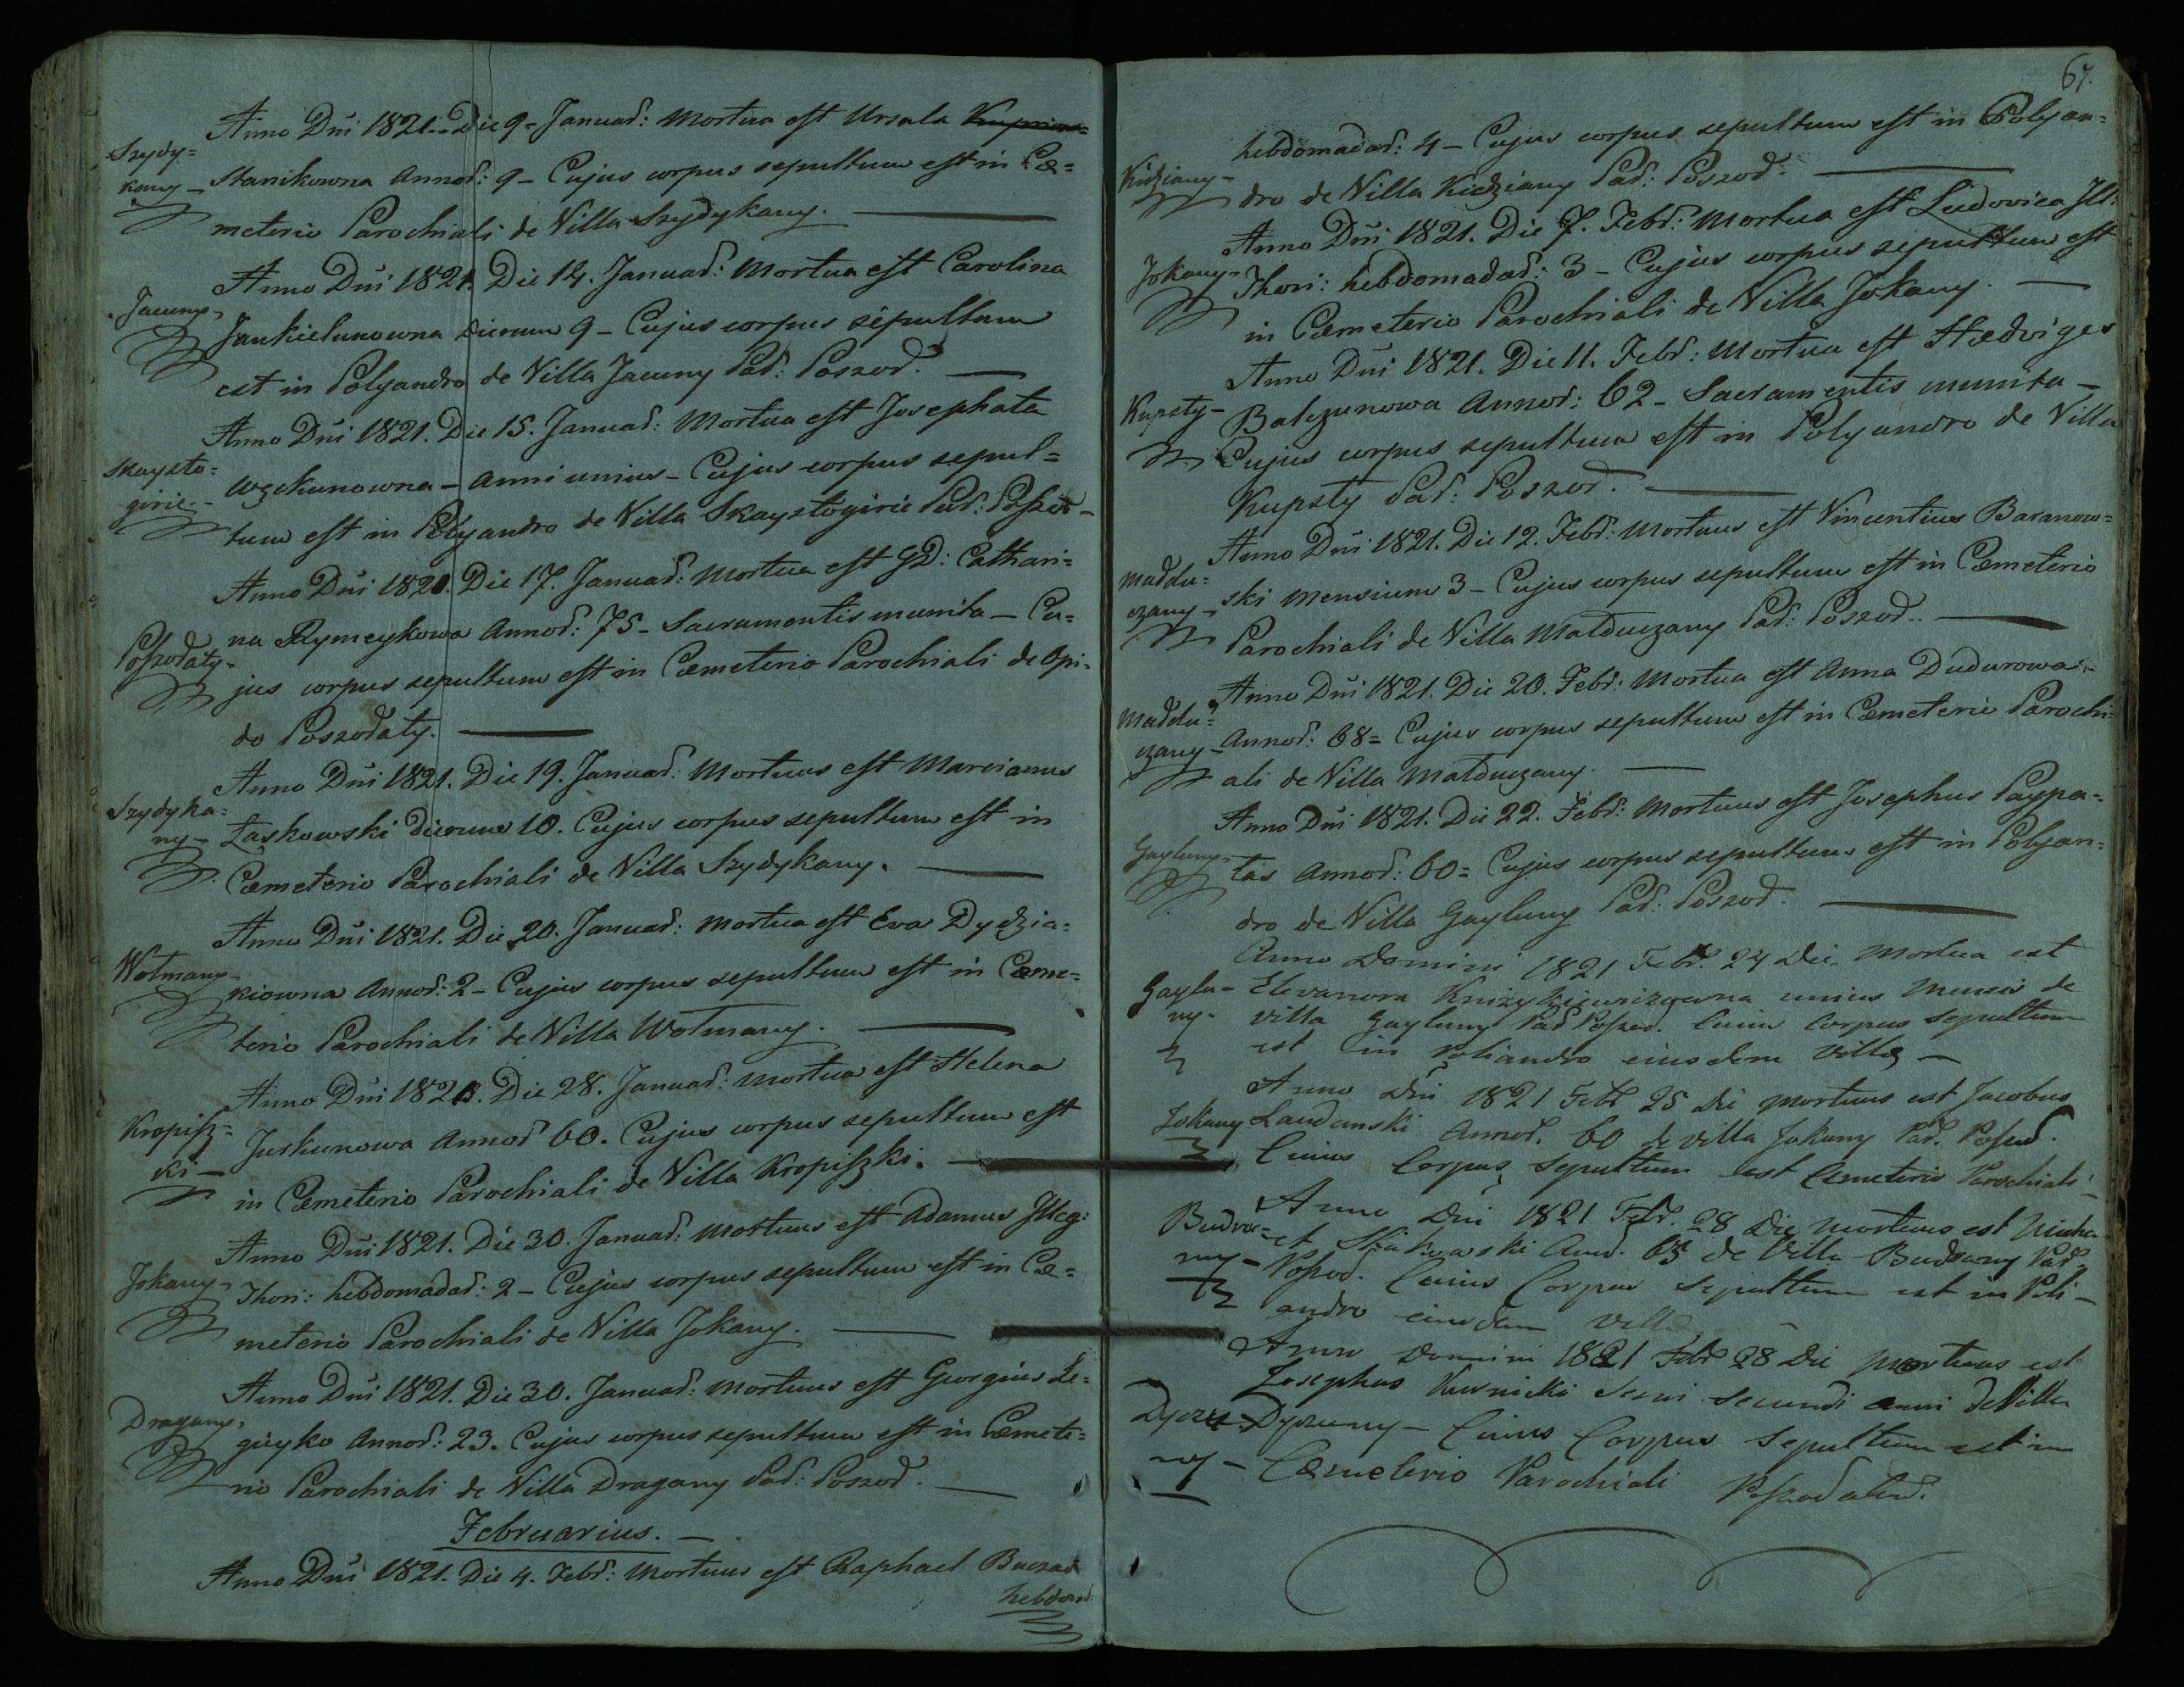 Anno Dni 1821. Die 9. Januar: Mortua est Ursula
Szydy=
kany –
Stanikowna Annor: 9 – Cujus corpus sepultum est in Cæ=
meterio Parochiali de Villa Szydykany.
Anno Dni 1821. Die 14. Januar: Mortua est Carolina
Jacuny
Jankielunowna dierum 9 – Cujus corpus sepultum
est in Polyandro de Villa Jacuny Par: Poszod.
Anno Dni 1821. Die 15. Januar: Mortua est Josephata
Skaysto=
girie –
– Anni unius – Cujus corpus sepul=
tum est in Polyandro de Villa Skaystogirie Par: Poszod –
Anno Dni 1820. Die 17. Januar: Mortua est GD: Cathari=
Poszodaty –
na Rymeykowa Annor: 75 – Sacramentis munita – Cu=
jus corpus sepultum est in Cæmeterio Parochiali de Opi=
do Poszodaty.
Anno Dni 1821. Die 19. Januar: Mortuus est Marcianus
Szydyka=
ny –
Łaskowski dierum 10. Cujus corpus sepultum est in
Cæmeterio Parochiali de Villa Szydykany.
Anno Dni 1821. Die 20. Januar: Mortua est Eva Dydzia=
Wotmany –
kiowna Annor: 2 – Cujus corpus sepultum est in Cæme=
terio Parochiali de Villa Wotmany.
Anno Dni 1821. Die 28. Januar: Mortua est Helena
Kropisz=
ki –
Jurkunowa Annor 60. Cujus corpus sepultum est
in Cæmeterio Parochiali de Villa Kropiszki.
Anno Dni 1821. Die 30. Januar: Mortuus est Adamus Illeg:
Jokany –
Thori: hebdomadar: 2 – Cujus corpus sepultum est in Cæ=
meterio Parochiali de Villa Jokany.
Anno Dni 1821. Die 30. Januar: Mortuus est Georgius Le=
Dragany –
gieyko Annor: 23. Cujus corpus sepultum est in Cæmete=
rio Parochiali de Villa Dragany Par: Poszod.
Februarius. –
Anno Dni 1821. Die 4. Febr: Mortuus est Raphael
hebdomad:
67.
hebdomadar: 4 – Cujus corpus sepultum est in Polyan=
Kidziany –
dro de Villa Kidziany Par: Poszod.
Anno Dni 1821. Die 7. Febr: Mortua est Ludovica Ill:
Jokany –
Thori: hebdomadar: 3 – Cujus corpus sepultum est
in Cæmeterio Parochiali de Villa Jokany.
Anno Dni 1821. Die 11. Febr: Mortua est Hedviges
Kupsty –
Balczunowa Annor: 62 – Sacramentis munita –
Cujus corpus sepultum est in Polyandro de Villa
Kupsty Par: Poszod.
Anno Dni 1821. Die 12. Febr: Mortuus est Vincentius Baranow=
Małdu=
czany –
ski Mensium 3 – Cujus corpus sepultum est in Cæmeterio
Parochiali de Villa Małduczany Par: Poszod.
Anno Dni 1821. Die 20. Febr: Mortua est Anna Dudurowa
Małdu=
czany –
Annor: 68 = Cujus corpus sepultum est in Cæmeterio Parochi=
ali de Villa Małduczany.
Anno Dni 1821. Die 22. Febr: Mortuus est Josephus Paypa=
Gayluny –
tas Annor: 60 = Cujus corpus sepultum est in Polyan=
dro de Villa Gayluny Par: Poszod.
Anno Domini 1821 Febr. 24 Die Mortua est
Gaylu=
ny –
unius Mensis de
villa Gayluny Par Poszod. Cuius Corpus Sepultum
est in Poliandro eiusdem Villæ –
Anno Dni 1821 Febr 25 Die mortuus est Jacobus
Jokany
Landanski Annor. 60 de villa Jokany Par. Poszod.
Cuius Corpus Sepultum est Cæmeterio Parochiali –
Anno Dni 1821 Febr. 28 Die mortuus est Micha
ny –
el 65 de Villa Par.
Poszod. Cuius Corpus Sepultum est in Poli –
andro eiusdem Villæ
Anno Domini 1821 Febr 28 Die Mortuus est
Josephus Kurnicki secundi anni de Villa
Dyczu=
ny –
Dyczuny – Cuius Corpus Sepultum est in
Cæmeterio Parochiali